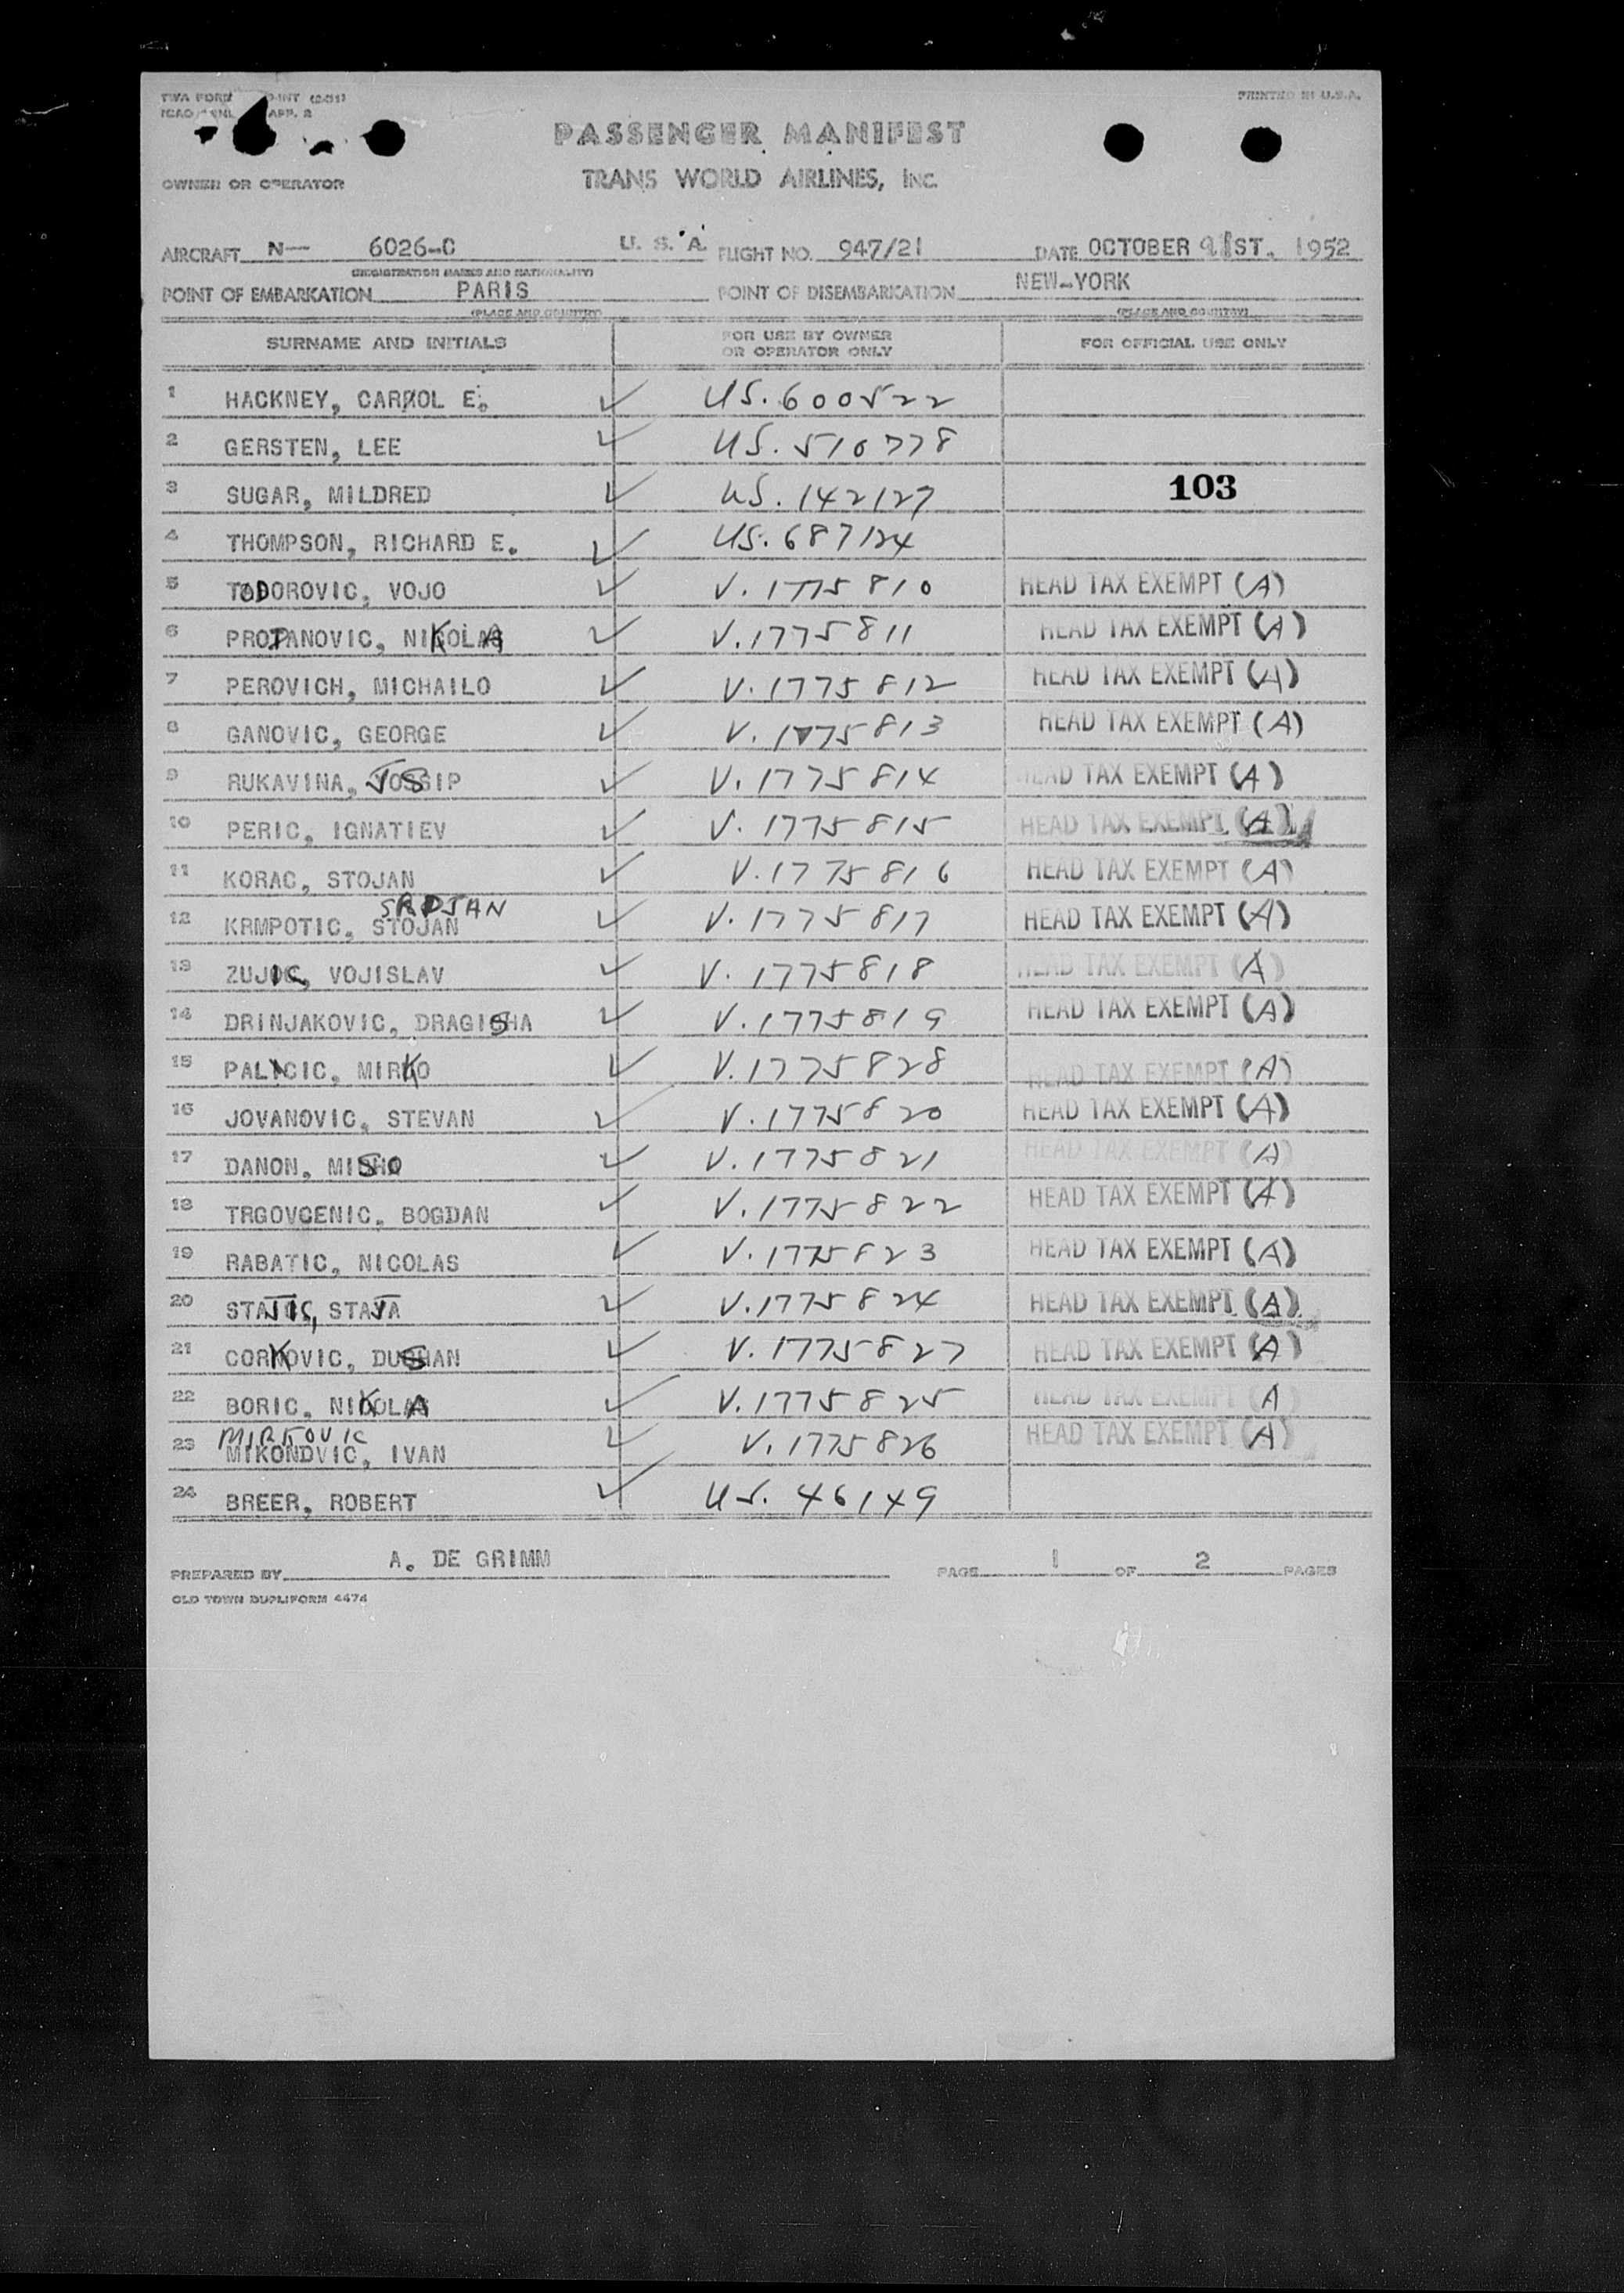 TWA FORM
PRINTED IN U.S.A.
APP. 2
PASSENGER MANIFEST
OWNER OR OPERATOR TRANS WORLD AIRLINES, INC.
AIRCRAFT N— 6026-C U. S. A. FLIGHT NO. 947/21 DATE OCTOBER 21ST. 1952
(REGISTRATION MARKS AND NATIONALITY)
POINT OF EMBARKATION PARIS POINT OF DISEMBARKATION NEW-YORK
(PLACE AND COUNTRY) (PLACE AND COUNTRY)
SURNAME AND INITIALS FOR USE BY OWNER OR OPERATOR ONLY FOR OFFICIAL USE ONLY
1 HACKNEY, CARROL E. ✓ US. 600522
2 GERSTEN, LEE ✓ US. 510778
3 SUGAR, MILDRED ✓ US. 142127 103
4 THOMPSON, RICHARD E. ✓ US. 687124
5 TODOROVIC, VOJO ✓ V. 1775810 HEAD TAX EXEMPT (A)
6 PROTANOVIC, NIKOLA ✓ V. 1775811 HEAD TAX EXEMPT (A)
7 PEROVICH, MICHAILO ✓ V. 1775812 HEAD TAX EXEMPT (A)
8 GANOVIC, GEORGE ✓ V. 1775813 HEAD TAX EXEMPT (A)
9 RUKAVINA, JOSIP ✓ V. 1775814 HEAD TAX EXEMPT (A)
10 PERIC, IGNATIEV ✓ V. 1775815 HEAD TAX EXEMPT (A)
11 KORAC, STOJAN ✓ V. 1775816 HEAD TAX EXEMPT (A)
SRDJAN
12 KRMPOTIC, STOJAN ✓ V. 1775817 HEAD TAX EXEMPT (A)
13 ZUJIC, VOJISLAV ✓ V. 1775818 HEAD TAX EXEMPT (A)
14 DRINJAKOVIC, DRAGISHA ✓ V. 1775819 HEAD TAX EXEMPT (A)
15 PALICIC, MIRKO ✓ V. 1775828 HEAD TAX EXEMPT (A)
16 JOVANOVIC, STEVAN ✓ V. 1775820 HEAD TAX EXEMPT (A)
17 DANON, MISO ✓ V. 1775821 HEAD TAX EXEMPT (A)
18 TRGOVCENIC, BOGDAN ✓ V. 1775822 HEAD TAX EXEMPT (A)
19 RABATIC, NICOLAS ✓ V. 1775823 HEAD TAX EXEMPT (A)
20 STAJIC, STAJA ✓ V. 1775824 HEAD TAX EXEMPT (A)
21 CORKOVIC, DUSHAN ✓ V. 1775827 HEAD TAX EXEMPT (A)
22 BORIC, NIKOLA ✓ V. 1775825 HEAD TAX EXEMPT A
MIRKOVIC
23 MIKONDVIC, IVAN ✓ V. 1775826 HEAD TAX EXEMPT (A)
24 BREER, ROBERT ✓ US. 46149
PREPARED BY A. DE GRIMM PAGE 1 OF 2 PAGES
OLD TOWN DUPLIFORM 4474